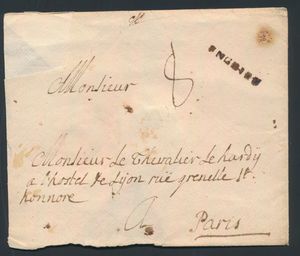 Monsieur
8
ENGHIEN
Monsieur Le Chevalier Le hardÿ
a l'hostel de Lyon ruë grenelle St.
honnore
a
Paris